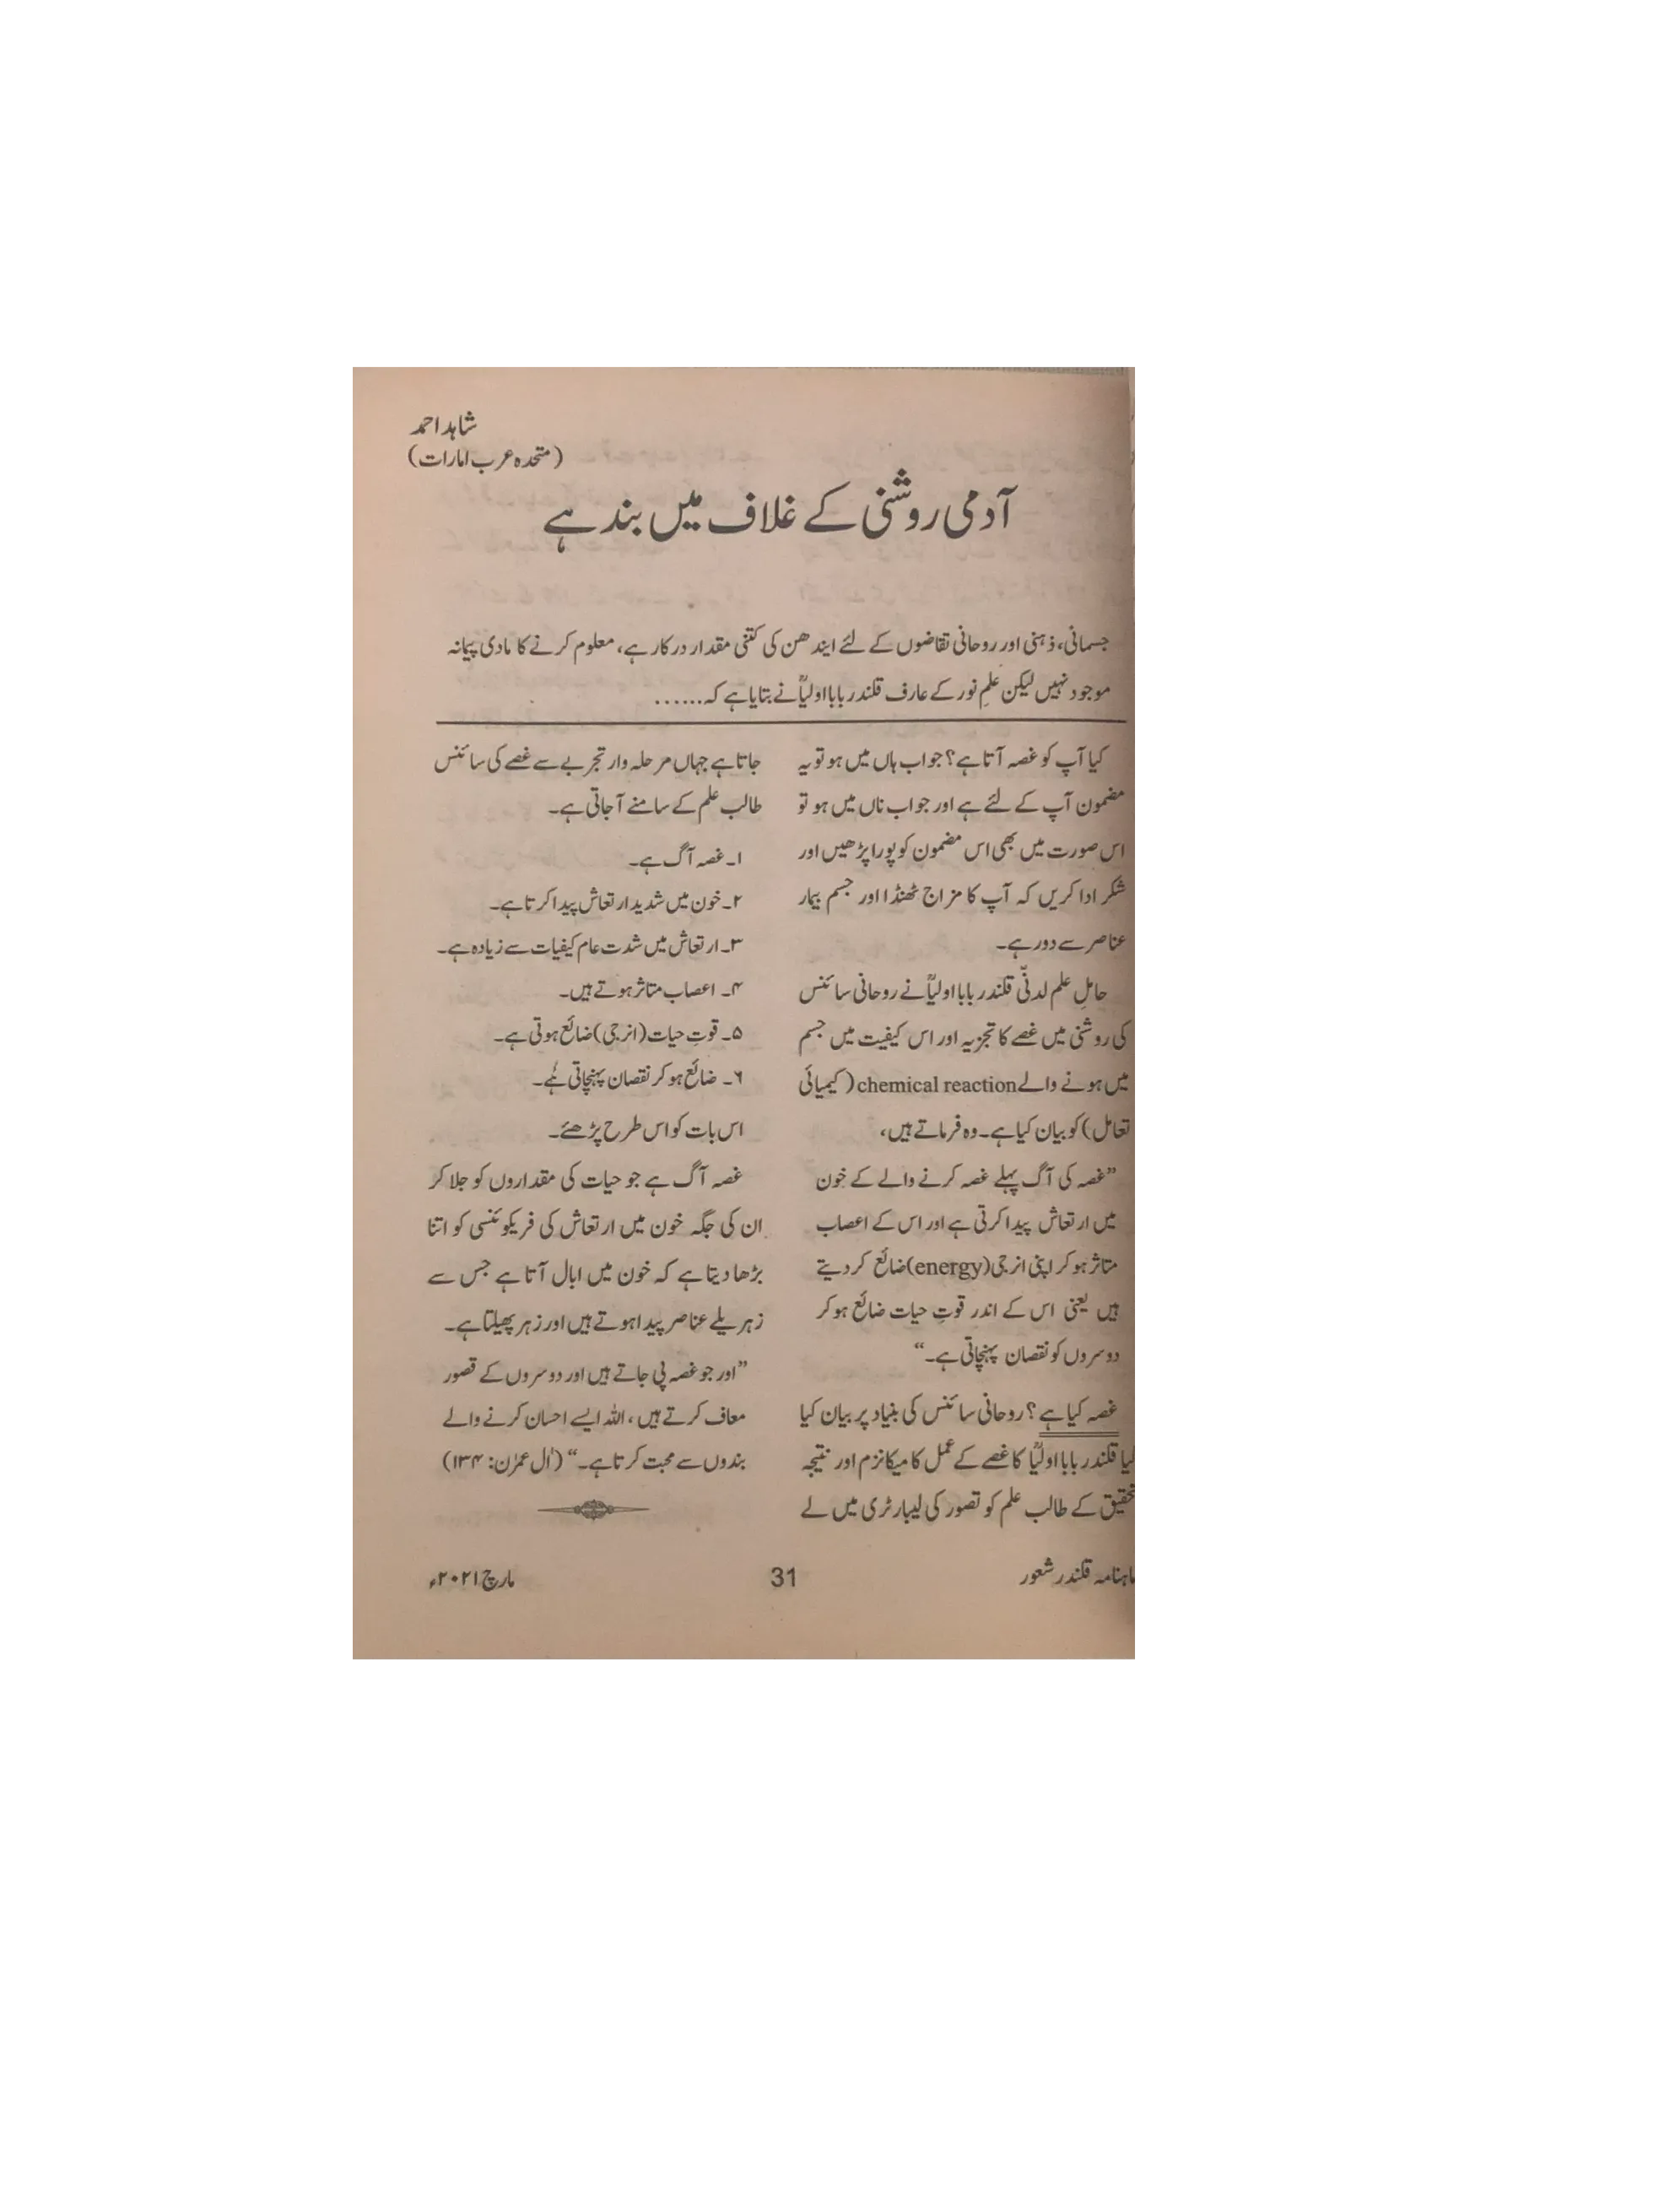 شاہد احمد
(متحدہ عرب امارات)
آدمی روشنی کے غلاف میں بند ہے
جسمانی، ذہنی اور روحانی تقاضوں کے لئے ایندھن کی کتنی مقدار درکار ہے، معلوم کرنے کا مادی پیمانہ
موجود نہیں لیکن علمِ نور کے عارف قلندر بابا اولیاؒ نے بتایا ہے کہ......
کیا آپ کو غصہ آتا ہے؟ جواب ہاں میں ہو تو یہ
مضمون آپ کے لئے ہے اور جواب ناں میں ہو تو
اس صورت میں بھی اس مضمون کو پورا پڑھیں اور
شکر ادا کریں کہ آپ کا مزاج ٹھنڈا اور جسم بیمار
عناصر سے دور ہے۔
حاملِ علم لدنّی قلندر بابا اولیاؒ نے روحانی سائنس
کی روشنی میں غصے کا تجزیہ اور اس کیفیت میں جسم
میں ہونے والے chemical reaction (کیمیائی
تعامل) کو بیان کیا ہے۔ وہ فرماتے ہیں،
”غصہ کی آگ پہلے غصہ کرنے والے کے خون
میں ارتعاش پیدا کرتی ہے اور اس کے اعصاب
متاثر ہو کر اپنی انرجی (energy) ضائع کر دیتے
ہیں یعنی اس کے اندر قوتِ حیات ضائع ہو کر
دوسروں کو نقصان پہنچاتی ہے۔“
غصہ کیا ہے؟ روحانی سائنس کی بنیاد پر بیان کیا
گیا قلندر بابا اولیاؒ کا غصے کے عمل کا میکانزم اور نتیجہ
تحقیق کے طالب علم کو تصور کی لیبارٹری میں لے
جاتا ہے جہاں مرحلہ وار تجربے سے غصے کی سائنس
طالب علم کے سامنے آ جاتی ہے۔
۱۔ غصہ آگ ہے۔
۲۔ خون میں شدید ارتعاش پیدا کرتا ہے۔
۳۔ ارتعاش میں شدت عام کیفیات سے زیادہ ہے۔
۴۔ اعصاب متاثر ہوتے ہیں۔
۵۔ قوتِ حیات (انرجی) ضائع ہوتی ہے۔
۶۔ ضائع ہو کر نقصان پہنچاتی ہے۔
اس بات کو اس طرح پڑھئے۔
غصہ آگ ہے جو حیات کی مقداروں کو جلا کر
ان کی جگہ خون میں ارتعاش کی فریکوئنسی کو اتنا
بڑھا دیتا ہے کہ خون میں ابال آتا ہے جس سے
زہریلے عناصر پیدا ہوتے ہیں اور زہر پھیلتا ہے۔
”اور جو غصہ پی جاتے ہیں اور دوسروں کے قصور
معاف کرتے ہیں، اللہ ایسے احسان کرنے والے
بندوں سے محبت کرتا ہے۔“ (اٰل عمرٰن: ۱۳۴)
ماہنامہ قلندر شعور
31
مارچ ۲۰۲۱ء